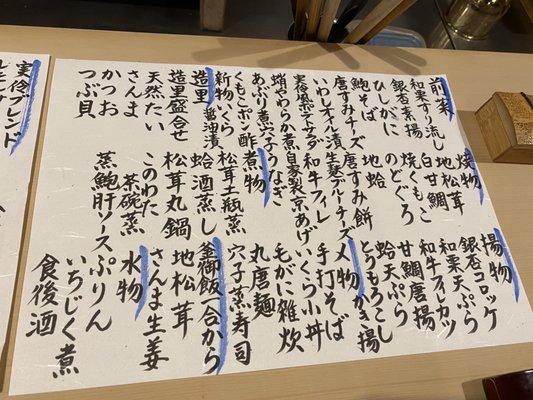 前菜
和栗すり流し
銀杏素揚
ひしがに
鮑そば
唐すみチーズ
いわしオイル漬
実伶風ポテサラダ
蛸やわらか煮
あぶり煮穴子
くもこポン酢
新物いくら
醤油漬
造里
造里盛合せ
天然たい
さんま
かつお
つぶ貝
焼物
地松茸
白甘鯛
焼くもこ
のどぐろ
地蛤
唐すみ餅
生麩デルチーズ
和牛フィレ
自家製京あげ
うなぎ
煮物
松茸土瓶蒸
蛤酒蒸し
松茸丸鍋
このわた
茶碗蒸
蒸鮑肝ソース
揚物
銀杏コロッケ
和栗天ぷら
和牛フィレカツ
甘鯛唐揚
蛤天ぷら
とうもろこし
かき揚
〆物
手打そば
いくら小丼
毛がに雑炊
丸唐麺
穴子蒸寿司
釜御飯一合から
地松茸
さんま生姜
水物
ぷりん
いちじく煮
食後酒
実伶ブレンド